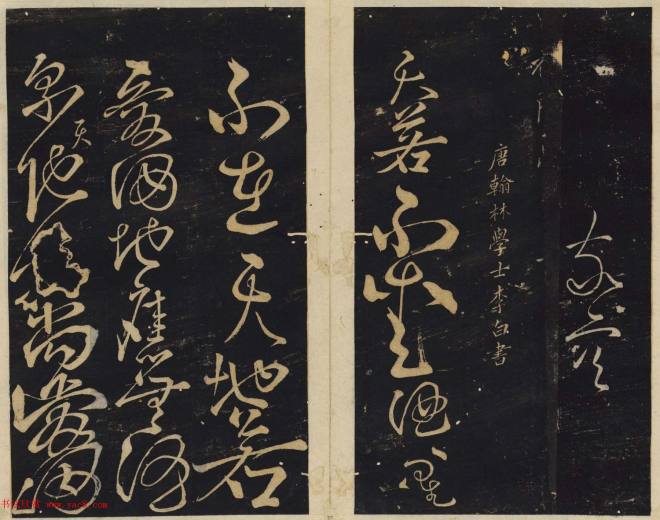 唐翰林學士李白書
天若不愛酒星
不在天地若
愛酒地應無酒
泉天地既尚愛酒
书法欣赏 www.yac8.com